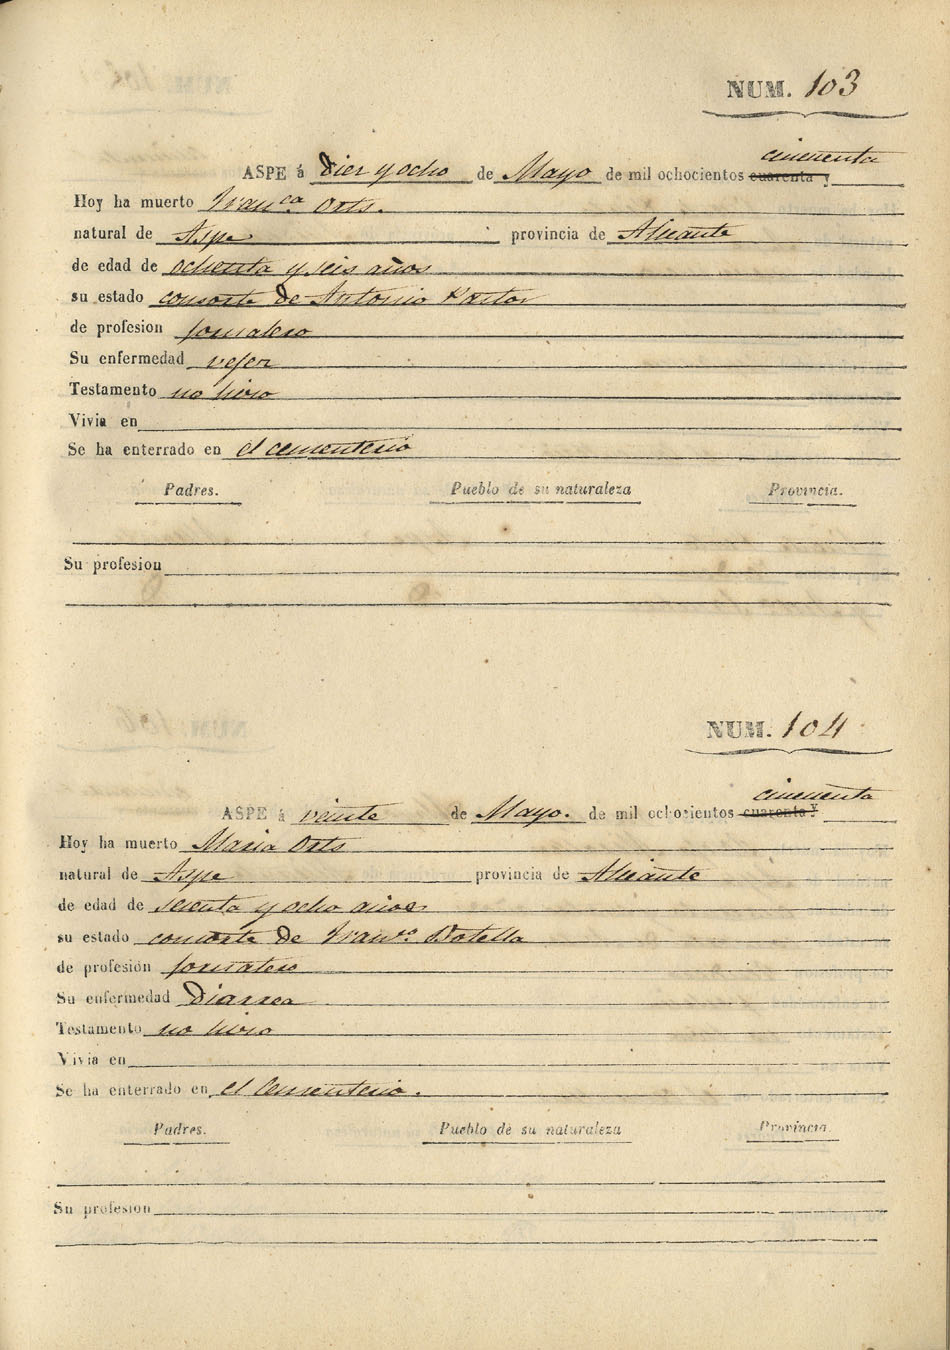 NUM. 103
cincuenta
ASPE á Diez y ocho de Mayo de mil ochocientos cuarenta y
Hoy ha muerto Franca. Orts.
natural de Aspe provincia de Alicante
de edad de ochenta y seis años
su estado consorte de Antonio Pastor
de profesion jornalero
Su enfermedad vejez
Testamento no hizo
Vivia en
Se ha enterrado en el cementerio
Padres. Pueblo de su naturaleza Provincia.
Su profesion
NUM. 104
cincuenta
ASPE á veinte de Mayo. de mil ochocientos cuarenta y
Hoy ha muerto Maria Orts
natural de Aspe provincia de Alicante
de edad de y ocho años
su estado consorte de Franco. Botella
de profesión jornalero
Su enfermedad Diarrea
Testamento no hizo
Vivia en
Se ha enterrado en el Cementerio.
Padres. Pueblo de su naturaleza Provincia.
Su profesion